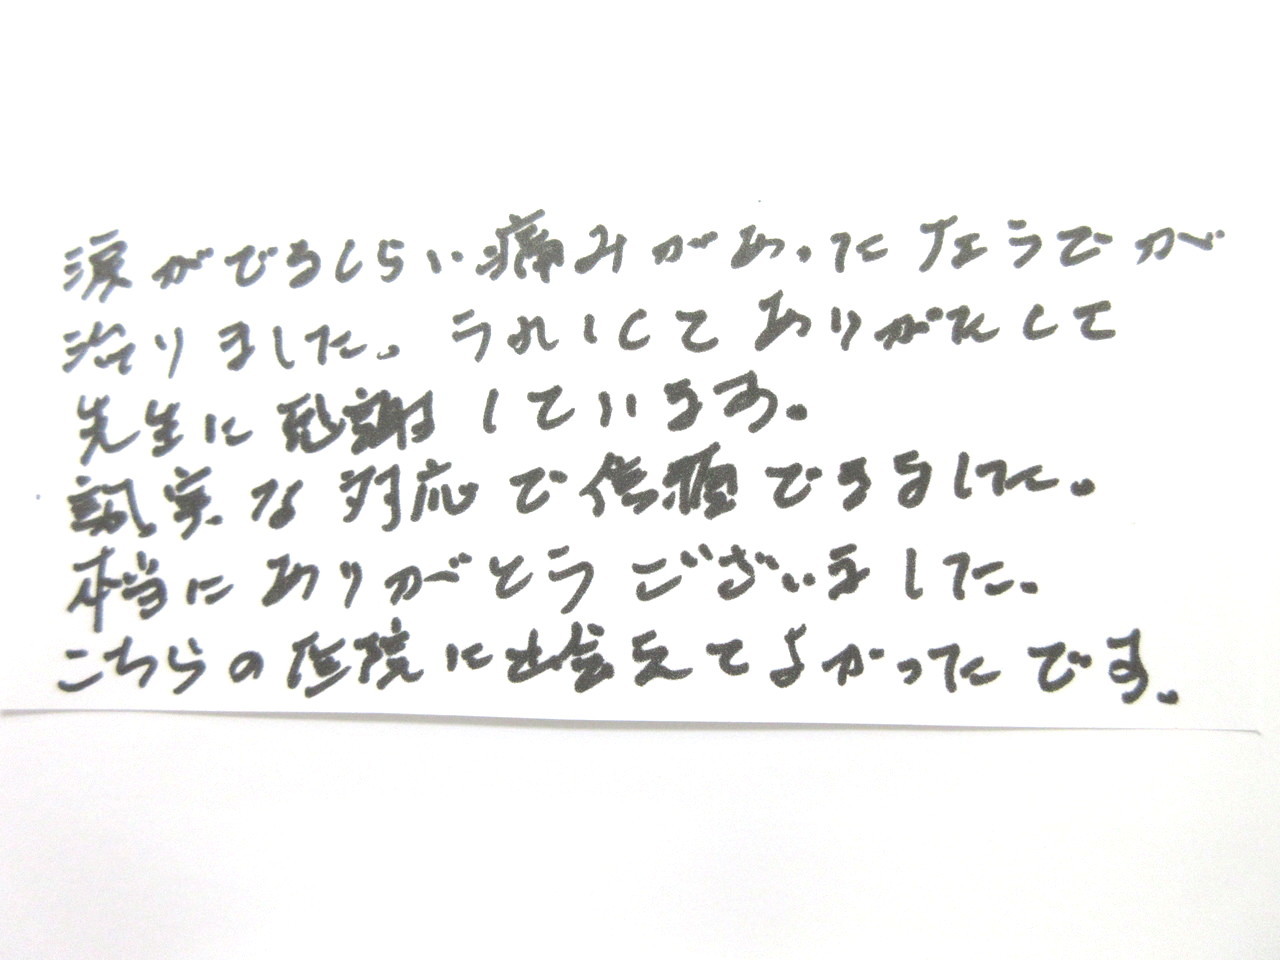 涙がでるくらい痛みがあった左うでが
治りました。うれしくてありがたくて
先生に感謝しています。
誠実な対応で信頼できました。
本当にありがとうございました。
こちらの医院に出会えてよかったです。